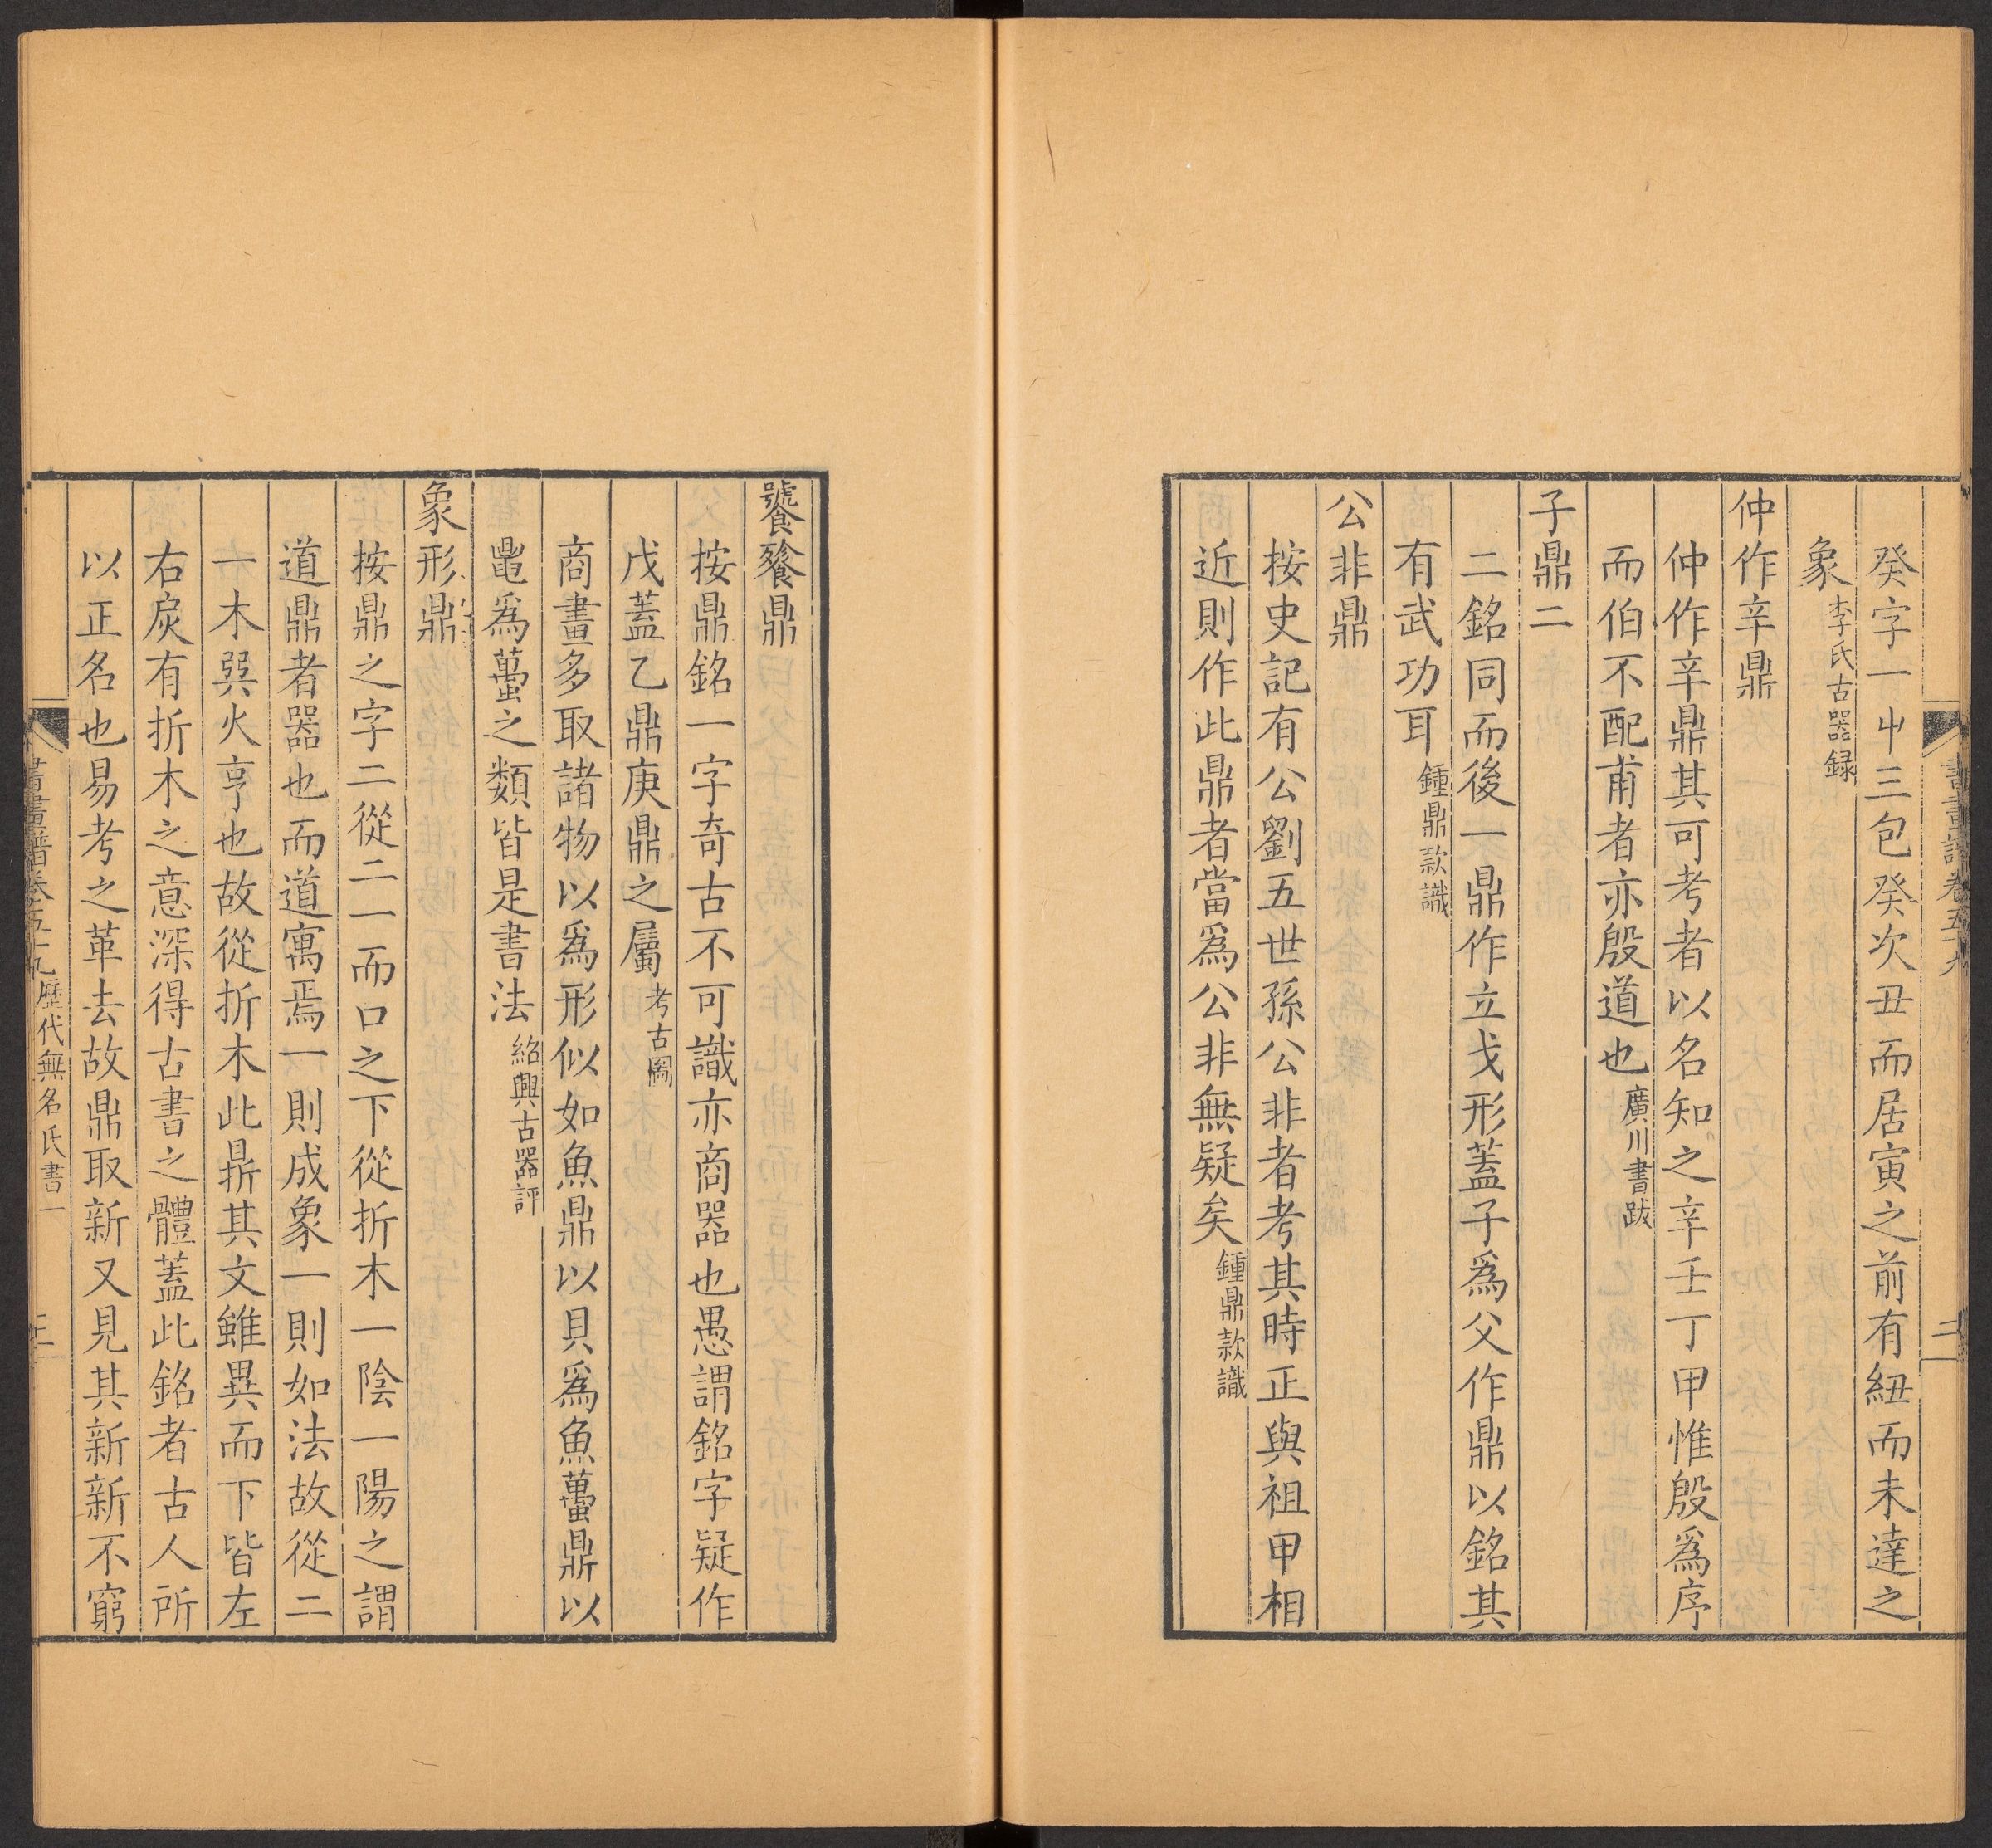 癸字一屮三包癸次丑而居寅之前有紐而未達之
象李氏古器録
仲作辛鼎
仲作辛鼎其可考者以名知之辛壬丁甲惟殷爲序
而伯不配甫者亦殷道也廣川書跋
子鼎二
二銘同而後一鼎作立戈形蓋子爲父作鼎以銘其
有武功耳鍾鼎款識
公非鼎
按史記有公劉五世孫公非者考其時正與祖甲相
近則作此鼎者當爲公非無疑矣鍾鼎款識
饕餮鼎
按鼎銘一字奇古不可識亦商器也愚謂銘字疑作
戊蓋乙鼎庚鼎之屬考古圖
商畫多取諸物以爲形似如魚鼎以貝爲魚蠆鼎以
黽爲蠆之類皆是書法紹興古器評
象形鼎
按鼎之字二從二一而口之下從折木一陰一陽之謂
道鼎者器也而道寓焉一則成象一則如法故從二
一木巽火亨也故從折木此鼎其文雖異而下皆左
右戾有折木之意深得古書之體蓋此銘者古人所
以正名也易考之革去故鼎取新又見其新新不窮
書畫譜卷五十九歷代無名氏書一